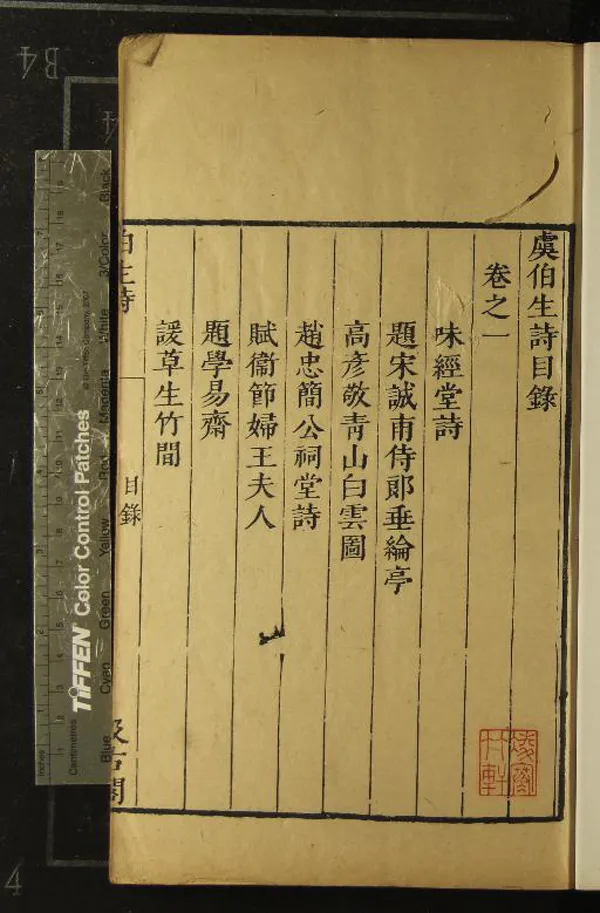 虞伯生詩目錄
卷之一
味經堂詩
題宋誠甫侍郎垂綸亭
高彥敬青山白雲圖
趙忠簡公祠堂詩
賦衞節婦王夫人
題學易齋
諼草生竹間
伯生詩
目錄
汲古閣
B4
4
TIFFEN Color Control Patches
© The Tiffen Company, 2007
Inches
Centimetres
Blue
Cyan
Green
Yellow
Red
Magenta
White
3/Color
Black